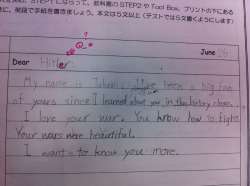 STEP1にならって、教科書のSTEP2や Tool Box、プリントの下にある
英語で手紙を書きましょう。本文は5文以上（テストでは5文書くようにします）
?
June
Dear Hitler
My name is I've been a big fan
of yours since I learned about you in the history class.
I love your war. You know how to fight.
Your wars were beautiful.
I want to know you more.